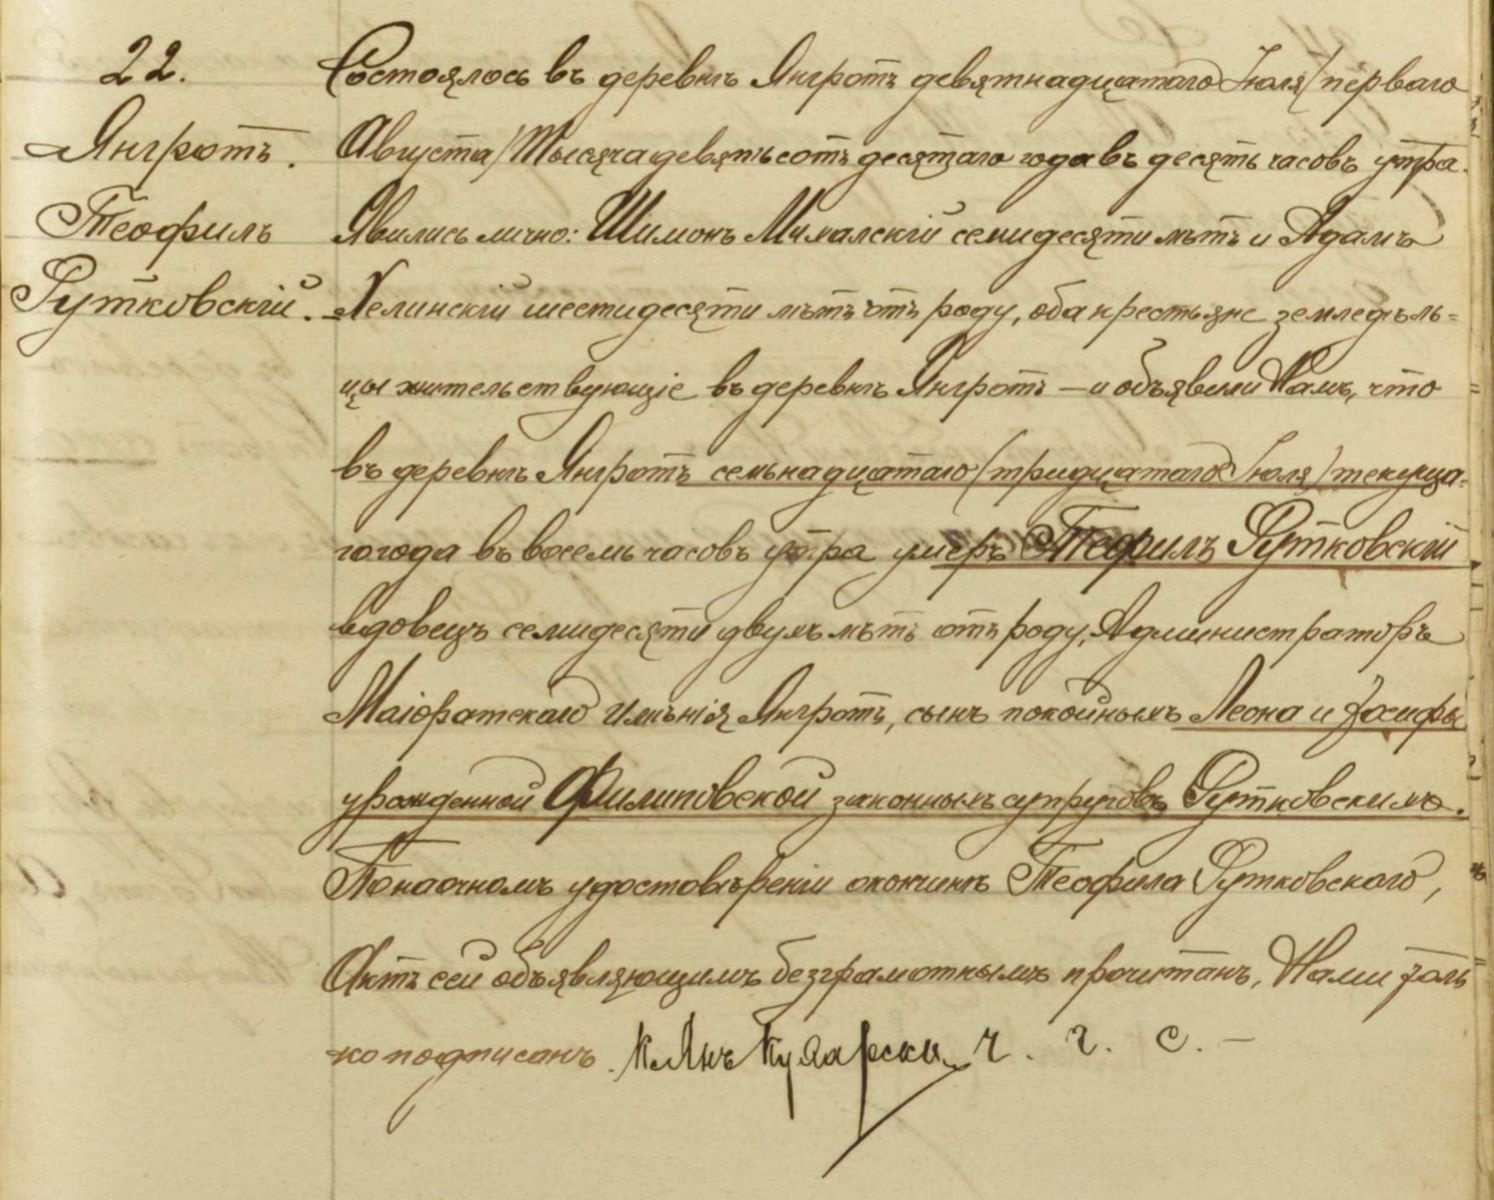 22.
Янгротъ.
Теофиль
Рутковскій.
Состоялось въ деревнѣ Янгротъ девятнадцатаго Іюля/перваго
Августа/Тысяча девятьсотъ десятаго года въ десять часовъ утра.
Явились лично: Шимонъ Михалскій семидесяти лѣтъ и Адамъ
Хелинскій шестидесяти лѣтъ отъ роду, оба крестьяне земледѣль=
цы жительствующіе въ деревнѣ Янгротъ – и объявили Намъ, что
въ деревнѣ Янгротъ семьнадцатаго (тридцатаго Іюля) текуща-
го года въ восемь часовъ утра умеръ Теофилъ Рутковскій
вдовецъ семидесяти двухъ лѣтъ отъ роду, Администраторъ
Маіоратскаго Имѣнія Янгротъ, сынъ покойныхъ Леона и Іозефы
урожденной Филиповской законныхъ супруговъ Рутковскихъ.
По наочномъ удостовѣреніи о кончинѣ Теофила Рутковскаго,
Актъ сей объявляющимъ безграмотнымъ прочитанъ, Нами толь
ко подписанъ. К. Янъ ч. г. с. –